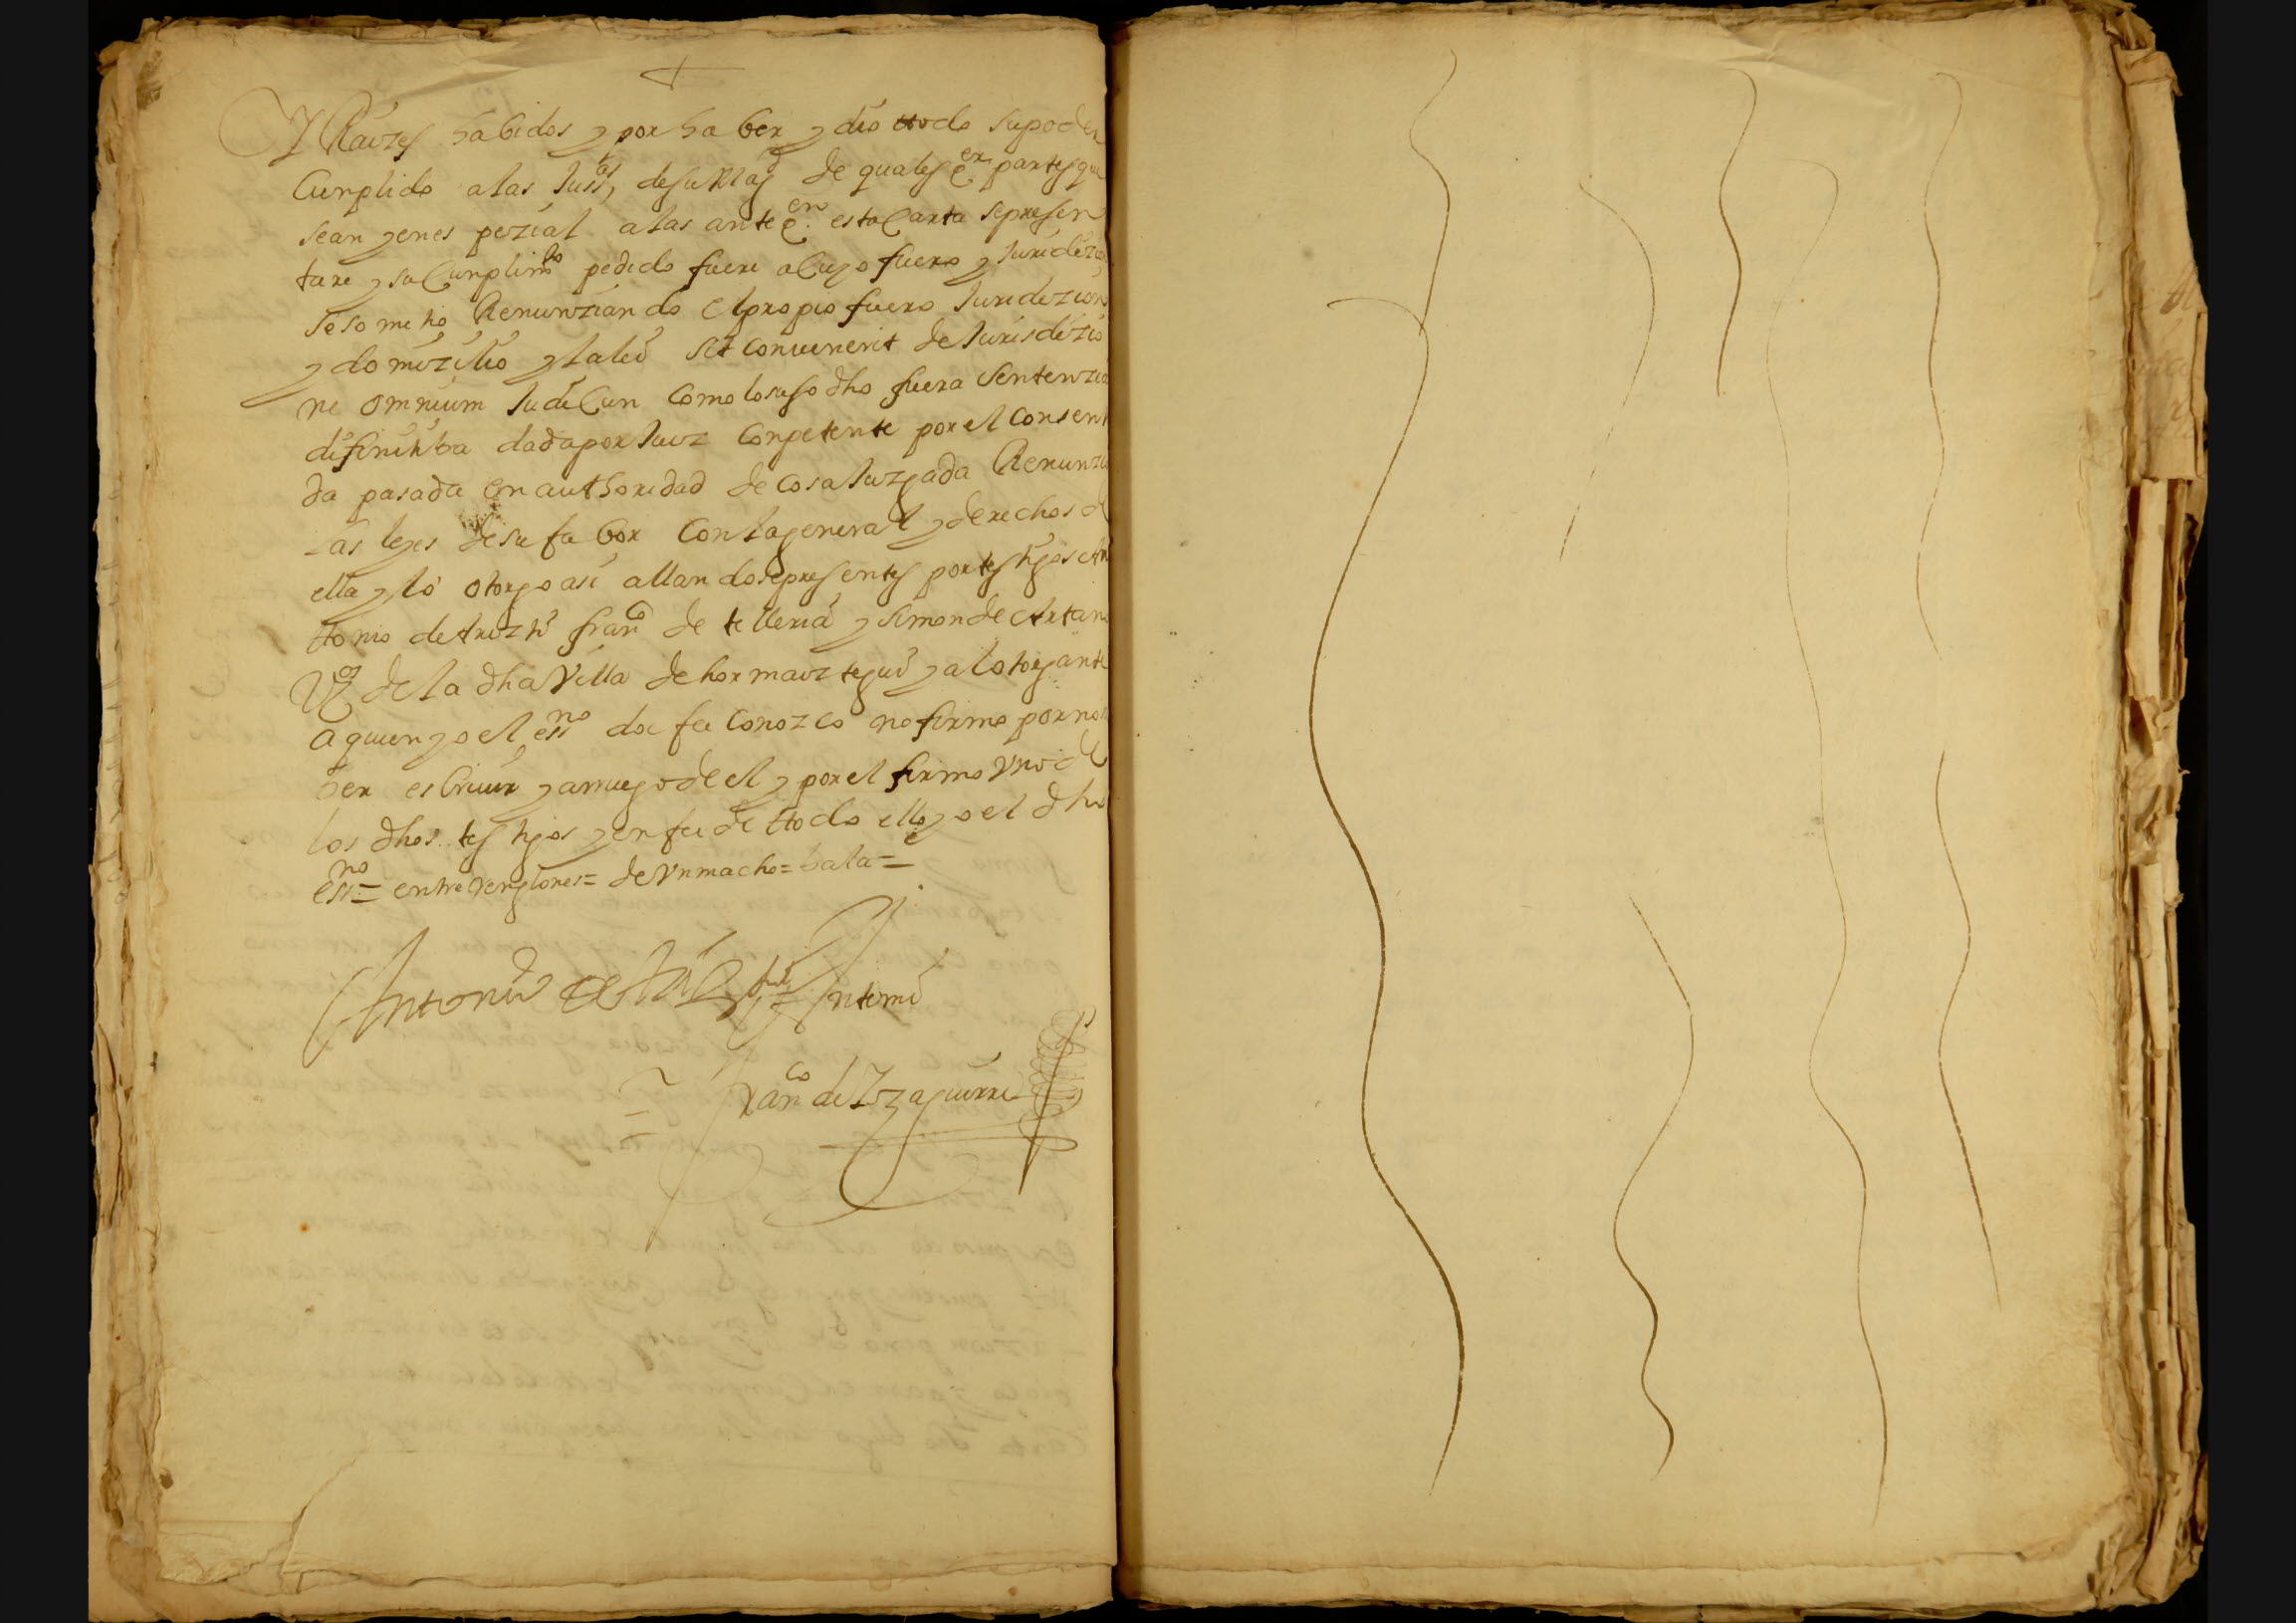 Y Raizes habidos y por haber y dio ttodo su poder
Cunplido a las Juss.as de su Mag.d de qualesq.er partes que
sean y en espezial a las ante q.en esta Carta se presen
tare y su Cunplim.to pedido fuere a Cuyo fuero y Juridizio
se sometio Renunziando el propio fuero Juridizion
y domizilio y la lei sit convenerit de Jurisdizio
ne omnium Judicun como lo suso dho fuera Sentenzia
difinitiba dada por Juez Conpetente por el Consenti
da pasada en authoridad de Cosa Juzgada Renunzio
las leyes de su fabor Con la general y derechos de
ella y lo otorgo asi allandose presentes por testigos An
ttonio de fran.co de telleria y Simon de Artano
Vz.os de la dha Villa de hormaiztegui y al otorgante
a quien yo el ess.no doi fee Conozco no firmo por no sa
ber escriuir y a rruego de el y por el firmo Vno de
los dhos testigos y en fee de ttodo ello yo el dho
ess.no = entre renglones = de Vn macho = bala =
Antonio de Ante mi
Fran.co de Yzaguirre